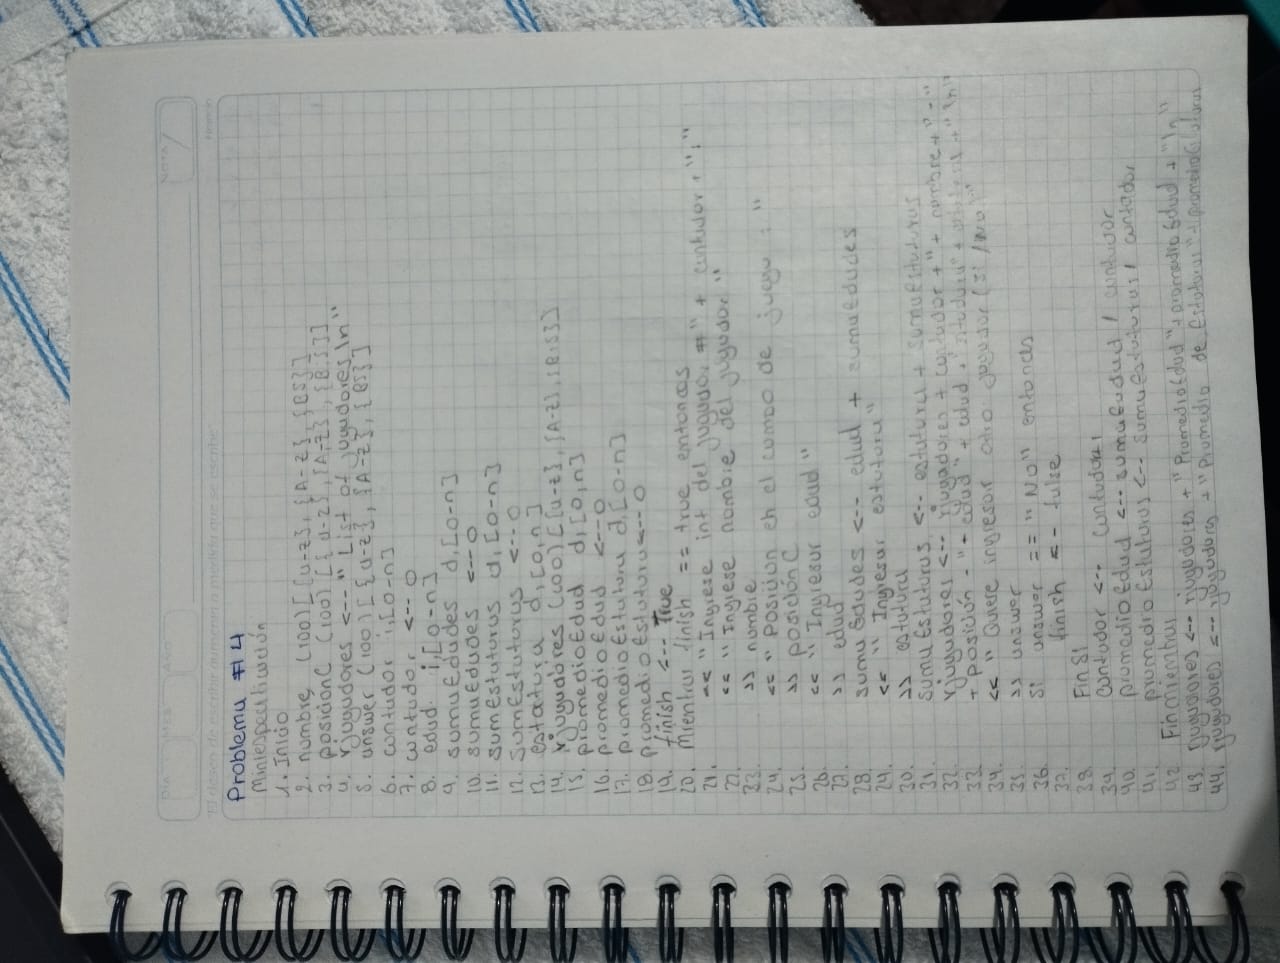 Problema #4
Miniespecificación
1. Inicio
2. nombre, (100) [{a-z}, {A-z}, {BS}]
3. posiciónC (100) [{a-z}, {A-z}, {BS}]
4. rjugadores <-- "List of jugadores \n"
5. answer (100) [{a-z}, {A-z}, {BS}]
6. contador i,[0-n]
7. contador <-- 0
8. edad i[0-n]
9. sumaEdades d,[0-n]
10. sumaEdades <--0
11. sumEstaturas d,[0-n]
12. SumEstaturas <--0
13. estatura d,[0,n]
14. rjugadores (100) [{a-z}, {A-z}, {BS}]
15. promedioEdad d,[0,n]
16. promedioEdad <--0
17. promedioEstatura d,[0-n]
18. PromedioEstatura<--0
19. finish <-- True
20. Mientras finish == true entonces
21. << "Ingrese int del jugador #" + contador + ":"
22. << "Ingrese nombre del jugador"
23. >> nombre
24. << "Posición en el campo de juego: "
25. >> posiciónC
26. << "Ingresar edad"
27. >> edad
28. suma Edades <-- edad + sumaEdades
29. << "Ingresar estatura"
30. >> estatura
31. Suma Estaturas <-- estatura + sumaEstaturas
32. rjugadores <-- rjugadores + contador +" " + nombre + "-"
33. + posición - "- edad" + edad + "estatura" + estatura + "\n"
34. << "Quiere ingresar otro jugador (si /no)"
35. >> answer
36. Si answer == "No" entonces
37. finish <-- false
38. Fin Si
39. Contador <-- contador+1
40. promedioEdad <-- sumaEdad / contador
41. promedioEstaturas <-- sumaEstaturas / contador
42. Fin mientras
43. rjugadores <-- rjugadores + "PromedioEdad" + promedioEdad + "\n"
44. rjugadores <-- rjugadores + "Promedio de Estaturas" + promedioEstaturas